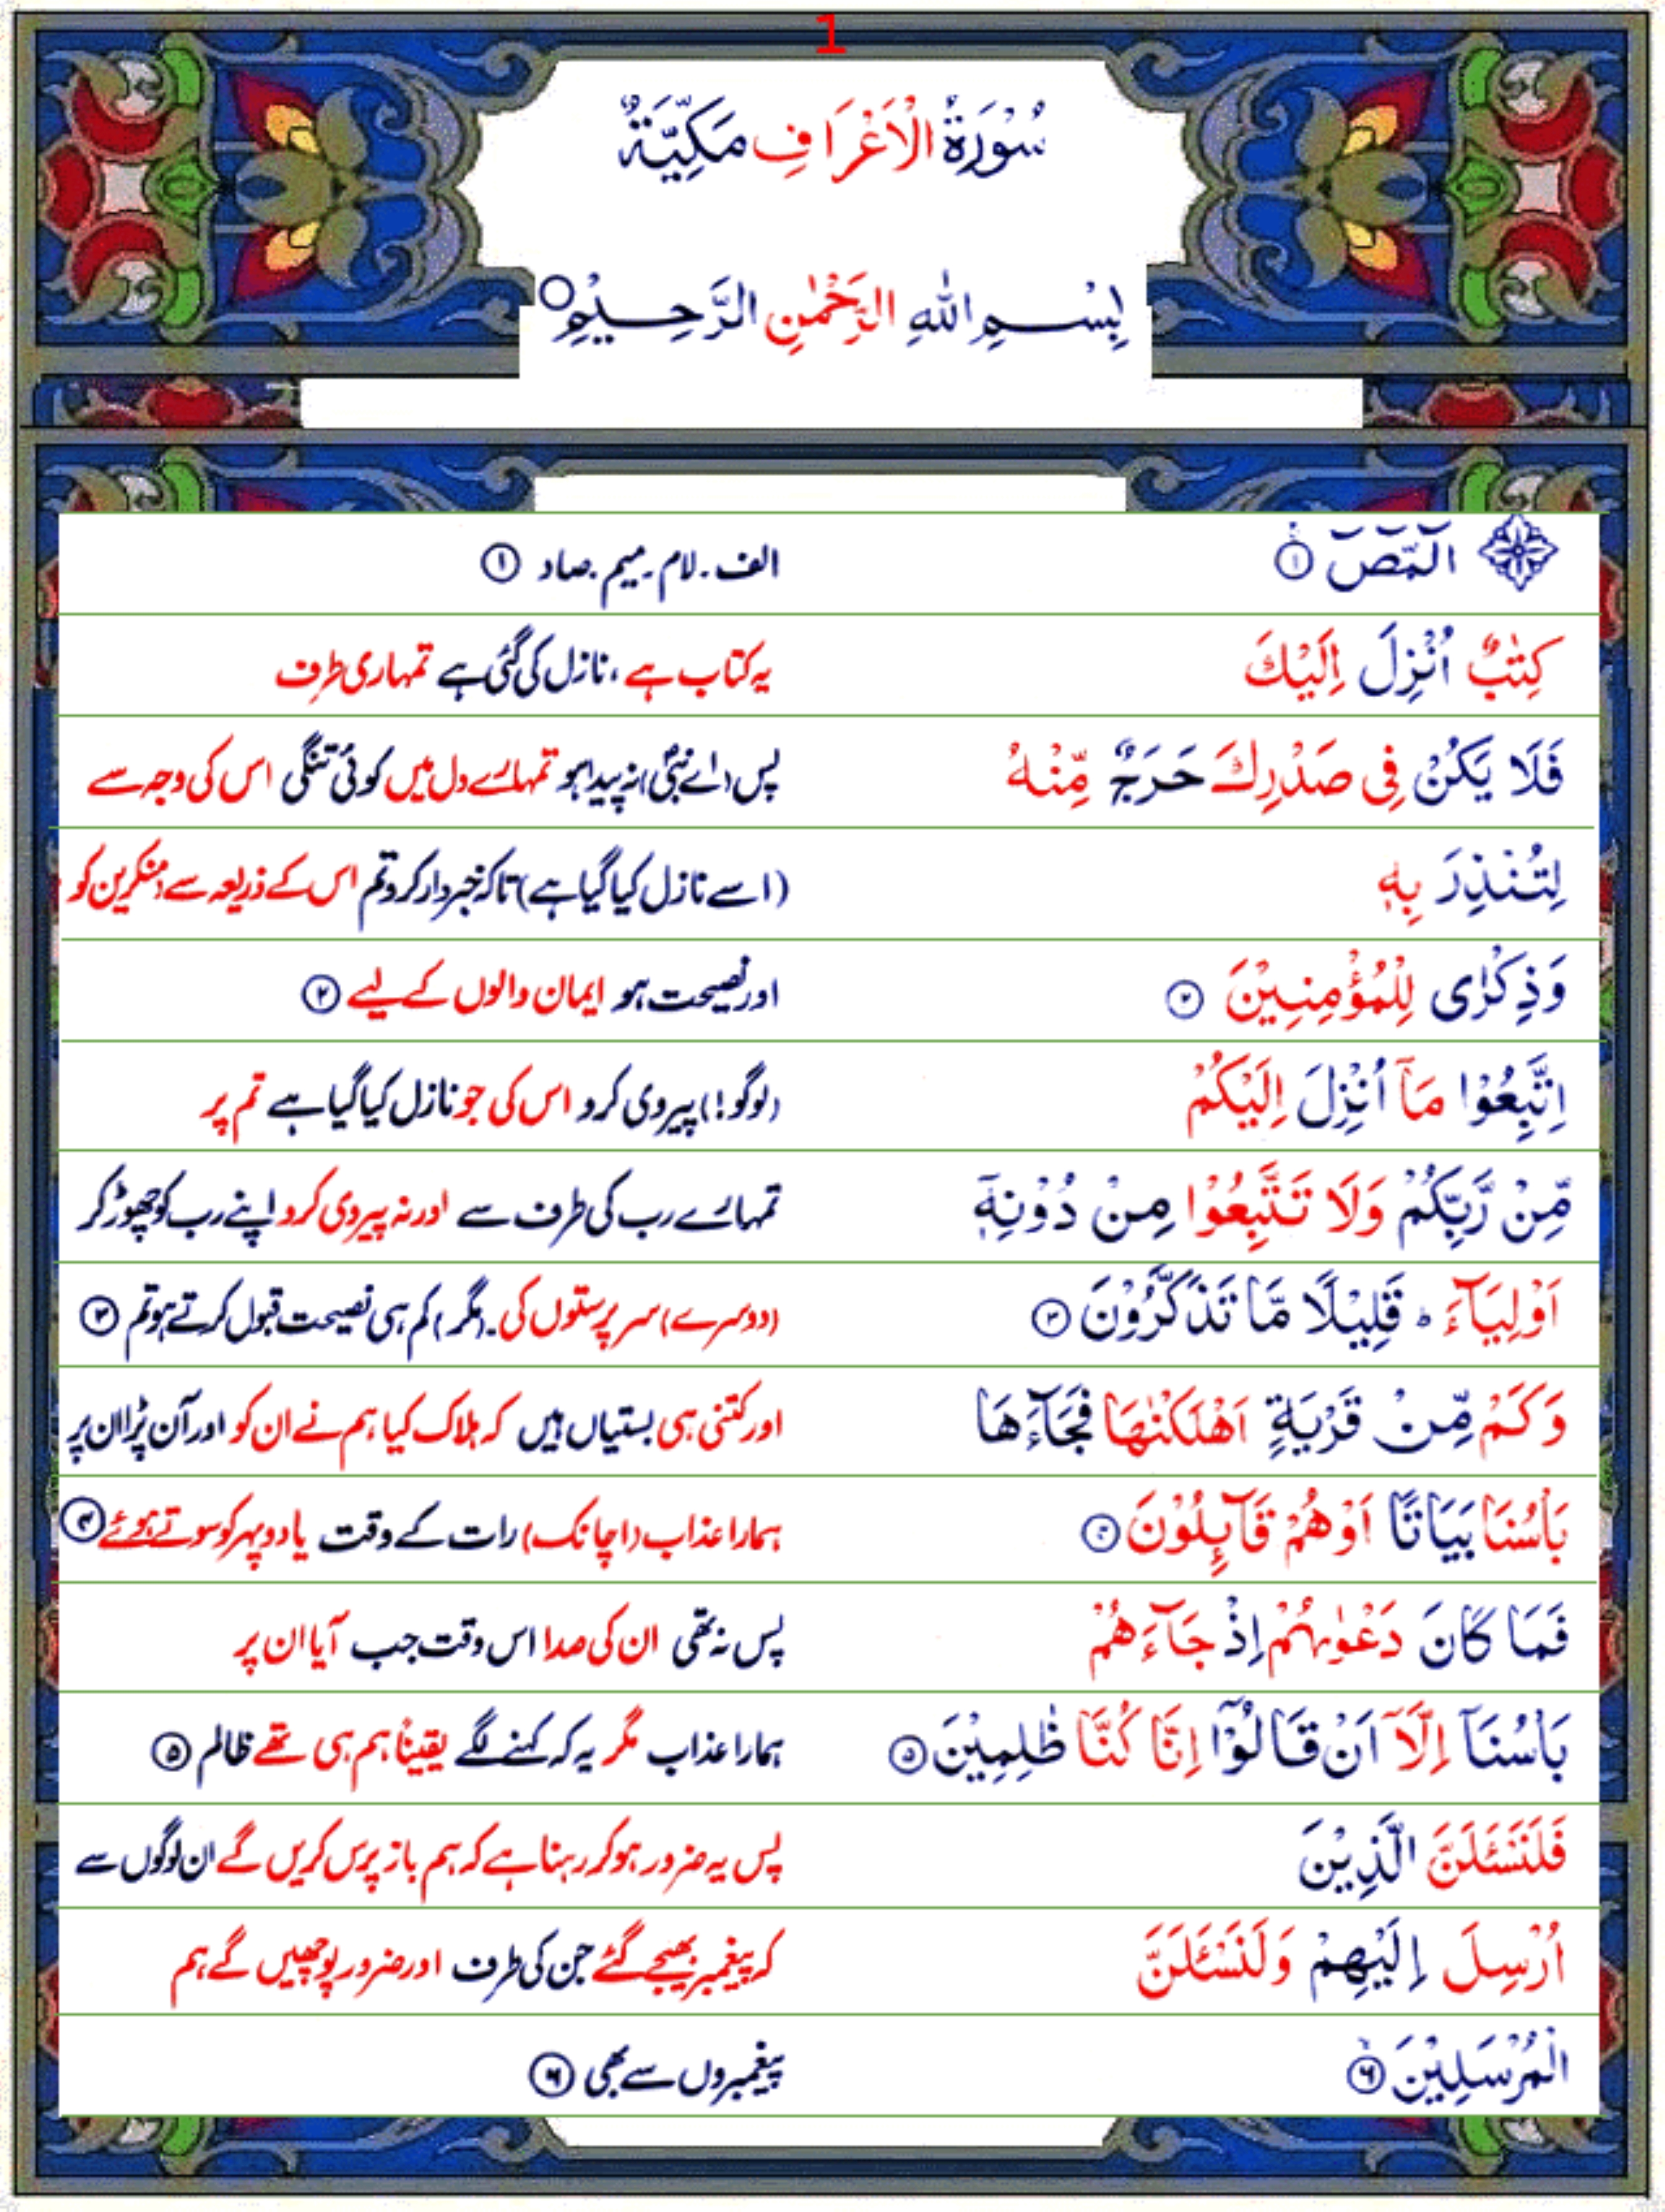 1
سُوْرَةُ الْاَعْرَافِ مَكِّيَّةٌ
بِسْمِ اللهِ الرَّحْمٰنِ الرَّحِيْمِ
الٓمّٓصٓ ۱ الف۔ لام۔ میم۔ صاد ۱
كِتٰبٌ اُنْزِلَ اِلَيْكَ یہ کتاب ہے ، نازل کی گئی ہے تمہاری طرف
فَلَا يَكُنْ فِى صَدْرِكَ حَرَجٌ مِّنْهُ پس (اے نبیؐ) نہ پیدا ہو تمہارے دل میں کوئی تنگی اس کی وجہ سے
لِتُنْذِرَ بِهٖ (اسے نازل کیا گیا ہے) تاکہ خبردار کرو تم اس کے ذریعہ سے منکرین کو
وَذِكْرٰى لِلْمُؤْمِنِيْنَ ۲ اور نصیحت ہو ایمان والوں کے لیے ۲
اِتَّبِعُوْا مَآ اُنْزِلَ اِلَيْكُمْ (لوگو!) پیروی کرو اس کی جو نازل کیا گیا ہے تم پر
مِّنْ رَّبِّكُمْ وَلَا تَتَّبِعُوْا مِنْ دُوْنِهٖٓ تمہارے رب کی طرف سے اور نہ پیروی کرو اپنے رب کو چھوڑ کر
اَوْلِيَآءَ ؕ قَلِيْلًا مَّا تَذَكَّرُوْنَ ۳ (دوسرے) سرپرستوں کی۔ (مگر) کم ہی نصیحت قبول کرتے ہو تم ۳
وَكَمْ مِّنْ قَرْيَةٍ اَهْلَكْنٰهَا فَجَآءَهَا اور کتنی ہی بستیاں ہیں کہ ہلاک کیا ہم نے ان کو اور آن پڑا ان پر
بَاْسُنَا بَيَاتًا اَوْ هُمْ قَآئِلُوْنَ ۴ ہمارا عذاب (اچانک) رات کے وقت یا دوپہر کو سوتے ہوئے ۴
فَمَا كَانَ دَعْوٰىهُمْ اِذْ جَآءَهُمْ پس نہ تھی ان کی صدا اس وقت جب آیا ان پر
بَاْسُنَآ اِلَّآ اَنْ قَالُوْٓا اِنَّا كُنَّا ظٰلِمِيْنَ ۵ ہمارا عذاب مگر یہ کہ کہنے لگے یقیناً ہم ہی تھے ظالم ۵
فَلَنَسْئَلَنَّ الَّذِيْنَ پس یہ ضرور ہو کر رہنا ہے کہ ہم باز پرس کریں گے ان لوگوں سے
اُرْسِلَ اِلَيْهِمْ وَلَنَسْئَلَنَّ کہ پیغمبر بھیجے گئے جن کی طرف اور ضرور پوچھیں گے ہم
الْمُرْسَلِيْنَ ۶ پیغمبروں سے بھی ۶